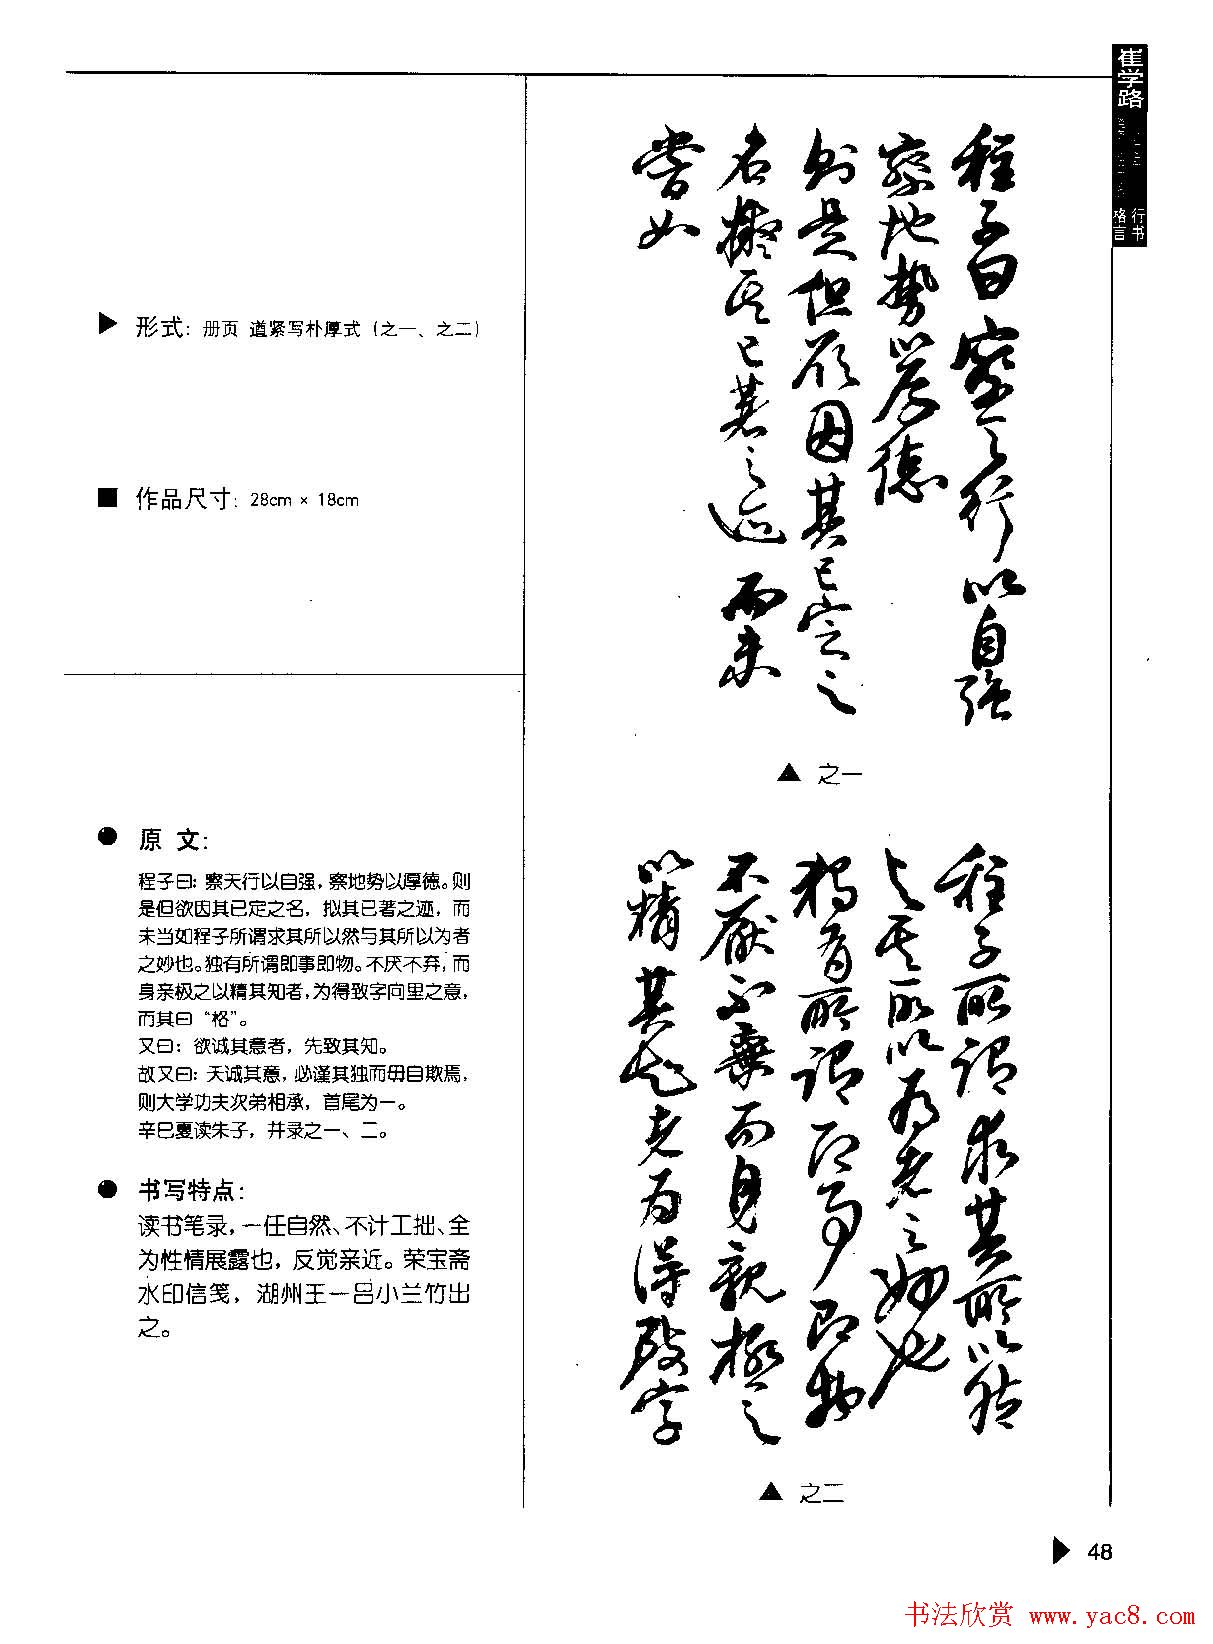 崔学路
行书
格言
▶ 形式: 册页 道紧写朴厚式 (之一、之二)
■ 作品尺寸: 28cm × 18cm
● 原 文:
程子曰: 察天行以自强, 察地势以厚德。则
是但欲因其已定之名, 拟其已著之迹, 而
未当如程子所谓求其所以然与其所以为者
之妙也。独有所谓即事即物。不厌不弃, 而
身亲极之以精其知者, 为得致字向里之意,
而其曰 “格”。
又曰: 欲诚其意者, 先致其知。
故又曰: 天诚其意, 必谨其独而毋自欺焉,
则大学功夫次弟相承, 首尾为一。
辛巳夏读朱子, 并录之一、二。
● 书写特点:
读书笔录, 一任自然、不计工拙、全
为性情展露也, 反觉亲近。荣宝斋
水印信笺, 湖州王一吕小兰竹出
之。
程子曰察天行以自强
察地势以厚德
则是但欲因其已定之
名擬其已著之迹而未
嘗如
▲ 之一
程子所谓求其所以然
与其所以为者之妙也
独有所谓即事即物
不厌不棄而身親極之
以精其知者为得致字
▲ 之二
▶ 48
书法欣赏 www.yac8.com